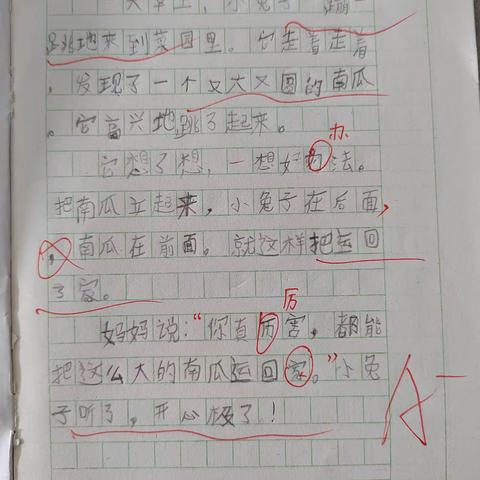 天早上，小兔子
跳地来到菜园里。它走着走着
，发现了一个又大又圆的南瓜
。它高兴地跳了起来。
办
它想了想，一想好法。
把南瓜立起来，小兔子在后面，
，南瓜在前面。就这样把运回
了家。
厉
妈妈说：“你真历害，都能
把这么大的南瓜运回家。”小兔
子听了，开心极了！
A-